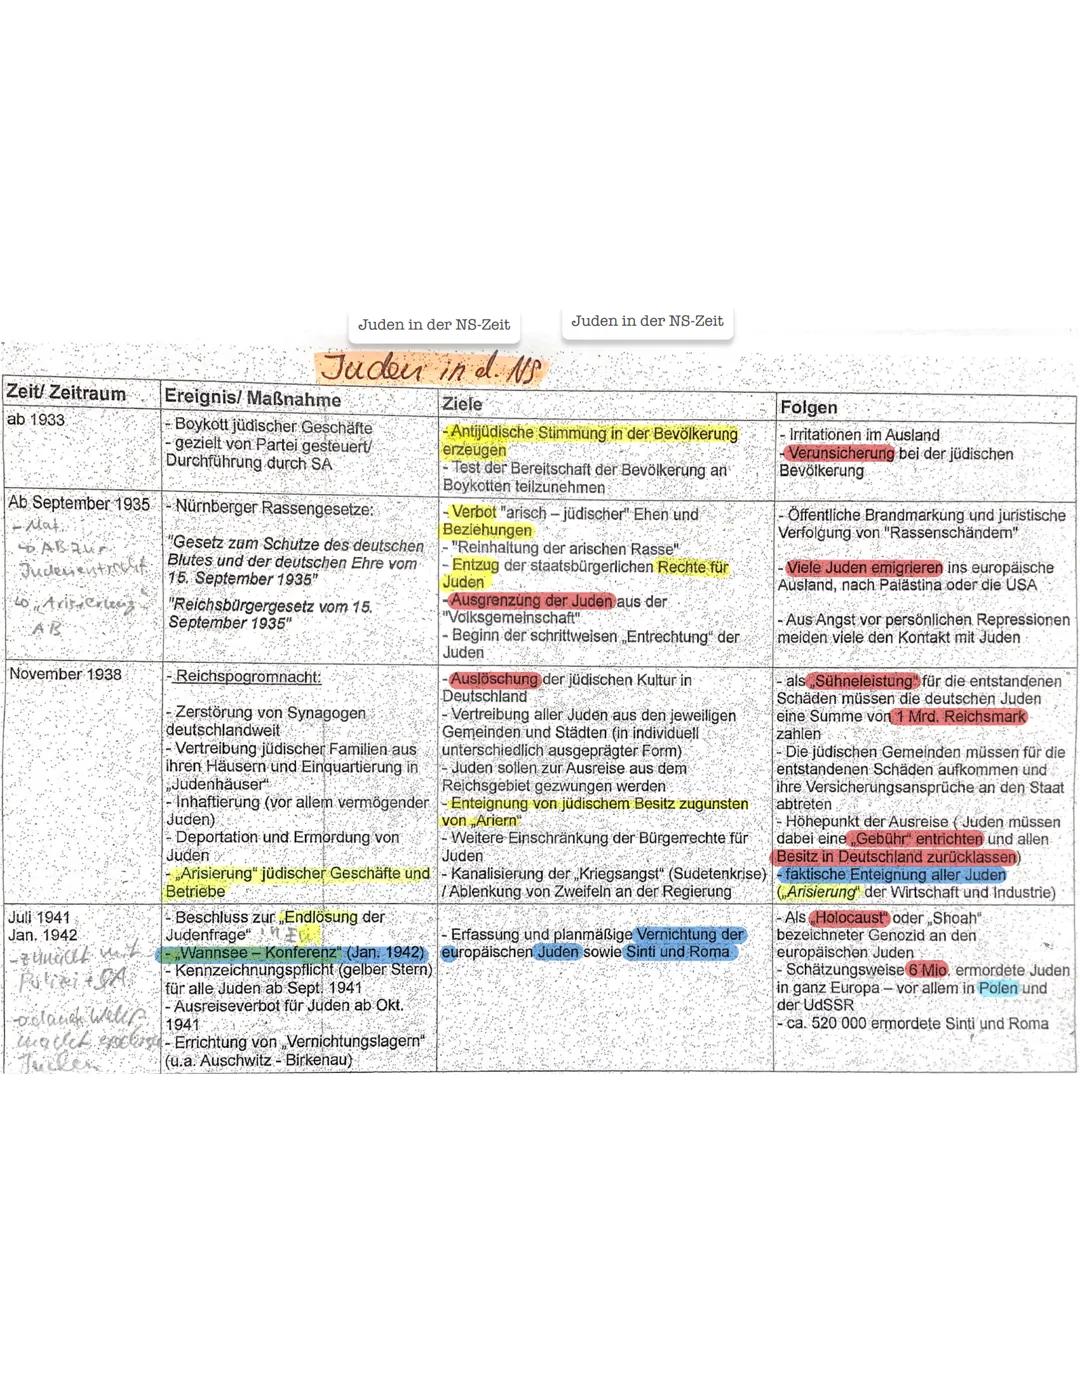 Juden in der NS-Zeit
Juden in der NS-Zeit
Juden in d. NS
Zeit/ Zeitraum
Ereignis/ Maßnahme
Ziele
Folgen
ab 1933
- Boykott jüdischer Geschäfte
- gezielt von Partei gesteuert/
Durchführung durch SA
- Antijüdische Stimmung in der Bevölkerung
erzeugen
- Test der Bereitschaft der Bevölkerung an
Boykotten teilzunehmen
- Irritationen im Ausland
- Verunsicherung bei der jüdischen
Bevölkerung
Ab September 1935
- Mat.
↳ AB zur
Judenentrecht
↳ „Arisierung"
AB
- Nürnberger Rassengesetze:
"Gesetz zum Schutze des deutschen
Blutes und der deutschen Ehre vom
15. September 1935"
"Reichsbürgergesetz vom 15.
September 1935"
- Verbot "arisch – jüdischer" Ehen und
Beziehungen
- "Reinhaltung der arischen Rasse"
- Entzug der staatsbürgerlichen Rechte für
Juden
- Ausgrenzung der Juden aus der
"Volksgemeinschaft"
- Beginn der schrittweisen „Entrechtung" der
Juden
- Öffentliche Brandmarkung und juristische
Verfolgung von "Rassenschändern"
- Viele Juden emigrieren ins europäische
Ausland, nach Palästina oder die USA
- Aus Angst vor persönlichen Repressionen
meiden viele den Kontakt mit Juden
November 1938
- Reichspogromnacht:
- Zerstörung von Synagogen
deutschlandweit
- Vertreibung jüdischer Familien aus
ihren Häusern und Einquartierung in
„Judenhäuser"
- Inhaftierung (vor allem vermögender
Juden)
- Deportation und Ermordung von
Juden
- „Arisierung" jüdischer Geschäfte und
Betriebe
- Auslöschung der jüdischen Kultur in
Deutschland
- Vertreibung aller Juden aus den jeweiligen
Gemeinden und Städten (in individuell
unterschiedlich ausgeprägter Form)
- Juden sollen zur Ausreise aus dem
Reichsgebiet gezwungen werden
- Enteignung von jüdischem Besitz zugunsten
von „Ariern"
- Weitere Einschränkung der Bürgerrechte für
Juden
- Kanalisierung der „Kriegsangst" (Sudetenkrise)
/ Ablenkung von Zweifeln an der Regierung
- als „Sühneleistung" für die entstandenen
Schäden müssen die deutschen Juden
eine Summe von 1 Mrd. Reichsmark
zahlen
- Die jüdischen Gemeinden müssen für die
entstandenen Schäden aufkommen und
ihre Versicherungsansprüche an den Staat
abtreten
- Höhepunkt der Ausreise ( Juden müssen
dabei eine „Gebühr" entrichten und allen
Besitz in Deutschland zurücklassen)
- faktische Enteignung aller Juden
(„Arisierung" der Wirtschaft und Industrie)
Juli 1941
Jan. 1942
- zunächst mit
Polizei + SA
- Juden
- Beschluss zur „Endlösung der
Judenfrage"
- „Wannsee – Konferenz" (Jan. 1942)
- Kennzeichnungspflicht (gelber Stern)
für alle Juden ab Sept. 1941
- Ausreiseverbot für Juden ab Okt.
1941
- Errichtung von „Vernichtungslagern"
(u.a. Auschwitz - Birkenau)
- Erfassung und planmäßige Vernichtung der
europäischen Juden sowie Sinti und Roma
- Als „Holocaust" oder „Shoah"
bezeichneter Genozid an den
europäischen Juden
- Schätzungsweise 6 Mio. ermordete Juden
in ganz Europa – vor allem in Polen und
der UdSSR
- ca. 520 000 ermordete Sinti und Roma